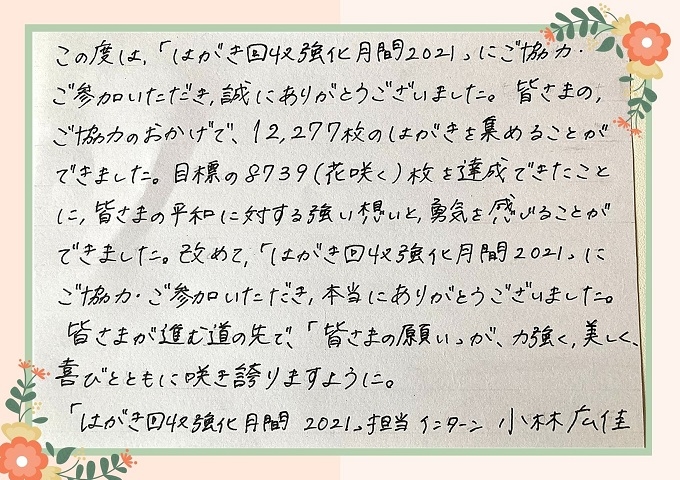 この度は,「はがき回収強化月間2021」にご協力・
ご参加いただき,誠にありがとうございました。皆さまの,
ご協力のおかげで、12,277枚のはがきを集めることが
できました。目標の8739(花咲く)枚を達成できたこと
に,皆さまの平和に対する強い想いと,勇気を感じることが
できました。改めて,「はがき回収強化月間2021」に
ご協力・ご参加いただき,本当にありがとうございました。
皆さまが進む道の先で、「皆さまの願い」が、力強く,美しく、
喜びとともに咲き誇りますように。
「はがき回収強化月間 2021」担当 インターン 小林広佳